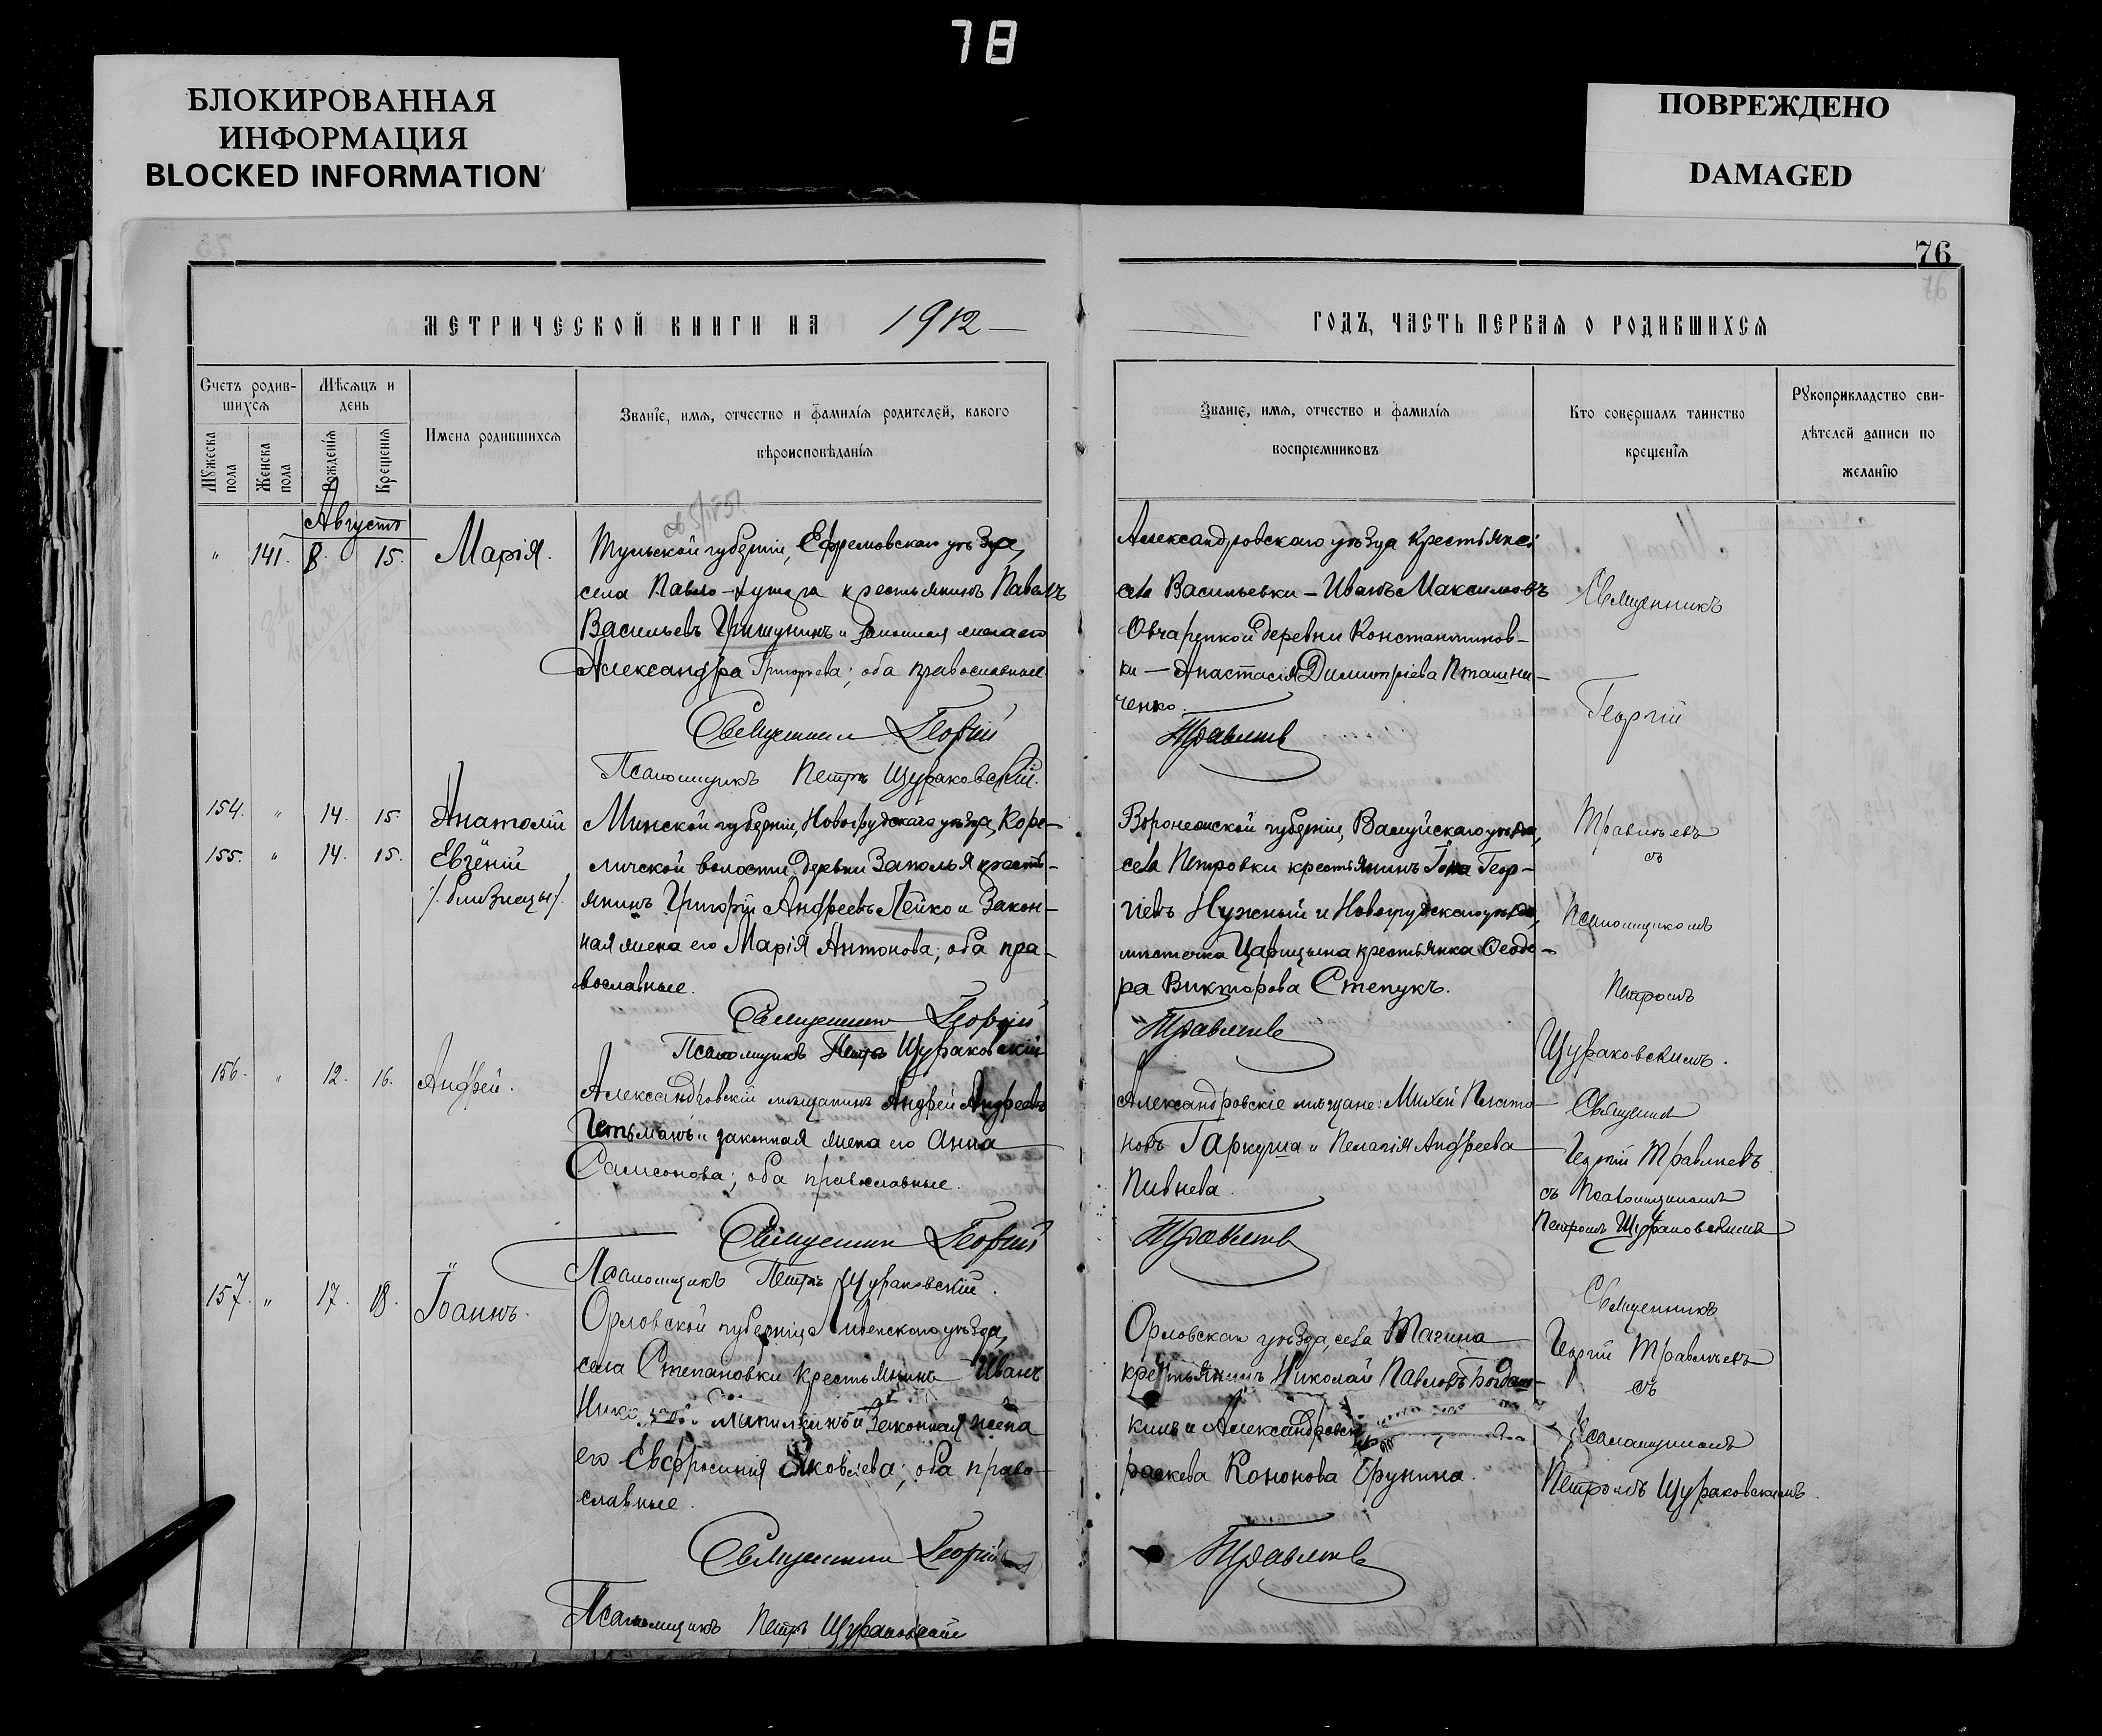 78
БЛОКИРОВАННАЯ
ИНФОРМАЦИЯ
BLOCKED INFORMATION
ПОВРЕЖДЕНО
DAMAGED
76
МЕТРИЧЕСКОЙ КНИГИ НА 1912
ГОДЪ, ЧАСТЬ ПЕРВАЯ О РОДИВШИХСЯ
Счетъ родив-
шихся
Мѣсяцъ и
день
Мужеска
пола
Женска
пола
Рожденія
Крещенія
Имена родившихся
Званіе, имя, отчество и фамилія родителей, какого
вѣроисповѣданія
Званіе, имя, отчество и фамилія
воспріемниковъ
Кто совершалъ таинство
крещенія
Рукоприкладство сви-
дѣтелей записи по
желанію
Августъ
" 141. 8. 15. Марія.
Тульской губерніи, Ефремовскаго уѣзда,
села Павло-Хутора крестьянинъ Павелъ
Васильевъ Гришунинъ и законная жена его
Александра Григорьева; оба православные.
Священникъ Георгій
Псаломщикъ Петръ Щураковскій.
Александровскаго уѣзда крестьяне:
села Васильевки - Иванъ Максимовъ
Овчаренко и деревни Константинов-
ки - Анастасія Димитріева Пташни-
ченко.
Травлѣевъ
Священникъ
Георгій
Травлѣевъ
съ
Псаломщикомъ
Петромъ
Щураковскимъ.
154. " 14. 15. Анатолій
155. " 14. 15. Евгеній
/. близнецы /.
Минской губерніи, Новогрудскаго уѣзда, Коре-
личской волости, деревни Заполья кресть-
янинъ Григорій Андреевъ Лейко и закон-
ная жена его Марія Антонова; оба пра-
вославные.
Священникъ Георгій
Псаломщикъ Петръ Щураковскій
Воронежской губерніи, Валуйскаго уѣзда,
села Петровки крестьянинъ Геор-
гіевъ Нужный и Новогрудскаго уѣзда,
мѣстечка Царицына крестьянка Ѳеодо-
ра Викторова Степукъ.
Травлѣевъ
156. " 12. 16. Андрей.
Александровскій мѣщанинъ Андрей Андреевъ
Гетьманъ и законная жена его Анна
Самсонова; оба православные.
Священникъ Георгій
Псаломщикъ Петръ Щураковскій.
Александровскіе мѣщане: Михей Плато-
новъ Гаркуша и Пелагія Андреева
Пивнева.
Травлѣевъ
Священникъ
Георгій Травлѣевъ
съ Псаломщикомъ
Петромъ Щураковскимъ
157. " 17. 18. Іоаннъ.
Орловской губерніи, Ливенскаго уѣзда,
села Степановки крестьянинъ Иванъ
и законная жена
его Евфросинія Яковлева; оба право-
славные.
Священникъ Георгій
Псаломщикъ Петръ Щураковскій
Орловскаго уѣзда, села Тагина
крестьянинъ Николай Павловъ Богдаш-
кинъ и Александровск
раскева Кононова Грунина.
Травлѣевъ
Священникъ
Георгій Травлѣевъ
съ
Псаломщикомъ
Петромъ Щураковскимъ.